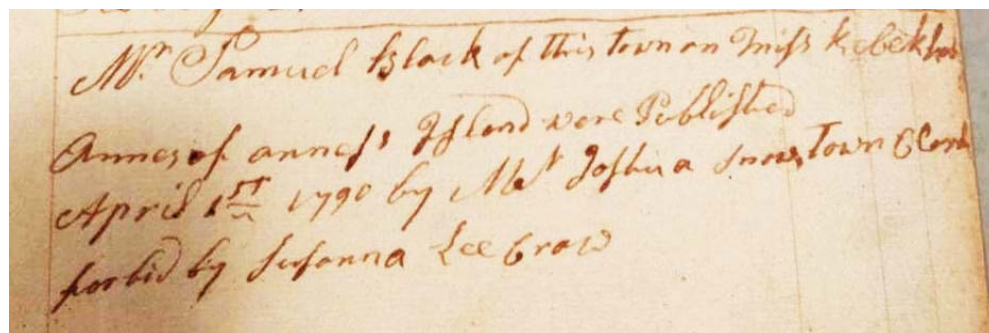 Mr. Samuel Black of this Town an Miss Rebekhah
Annes of anness Island were Published
April 1st 1790 by Mr Joshua Snow, Town Clerk
forbid by Susanna Lee Crow